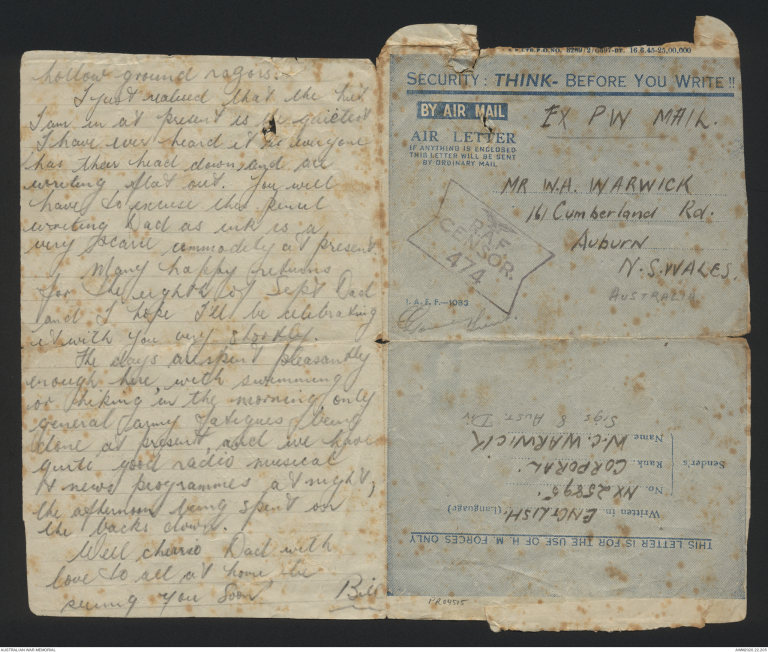 hollow ground razors.
I just realised that the hut
I am in at present is the quietest
I have ever heard it as everyone
has their head down and are
writing flat out. You will
have to excuse this pencil
writing Dad as ink is a
very scarce commodity at present
Many happy returns
for the eighth of Sept Dad
and I hope I'll be celebrating
it with you very shortly.
The days are spent pleasantly
enough here, with swimming
or hiking in the morning only
general army fatigues being
done at present, and we have
quite good radio musical
& news programmes at night,
the afternoons being spent on
the backs down.
Well cheerio Dad with
love to all at home, be
seeing you soon.
Bill
16.6.45-25,00,000
SECURITY : THINK- BEFORE YOU WRITE !!
BY AIR MAIL
AIR LETTER
IF ANYTHING IS ENCLOSED
THIS LETTER WILL BE SENT
BY ORDINARY MAIL
EX PW MAIL.
MR W.A. WARWICK
161 Cumberland Rd.
Auburn
N.S.WALES.
AUSTRALIA
RAF
CENSOR.
474
I. A. F. F.—1083
THIS LETTER IS FOR THE USE OF H. M. FORCES ONLY
Written in ENGLISH. (Language)
Sender's
No. NX25895.
Rank CORPORAL.
Name W.C. WARWICK
Sigs 8 Aust Div
PR04515
AUSTRALIAN WAR MEMORIAL
AWM2020.22.205